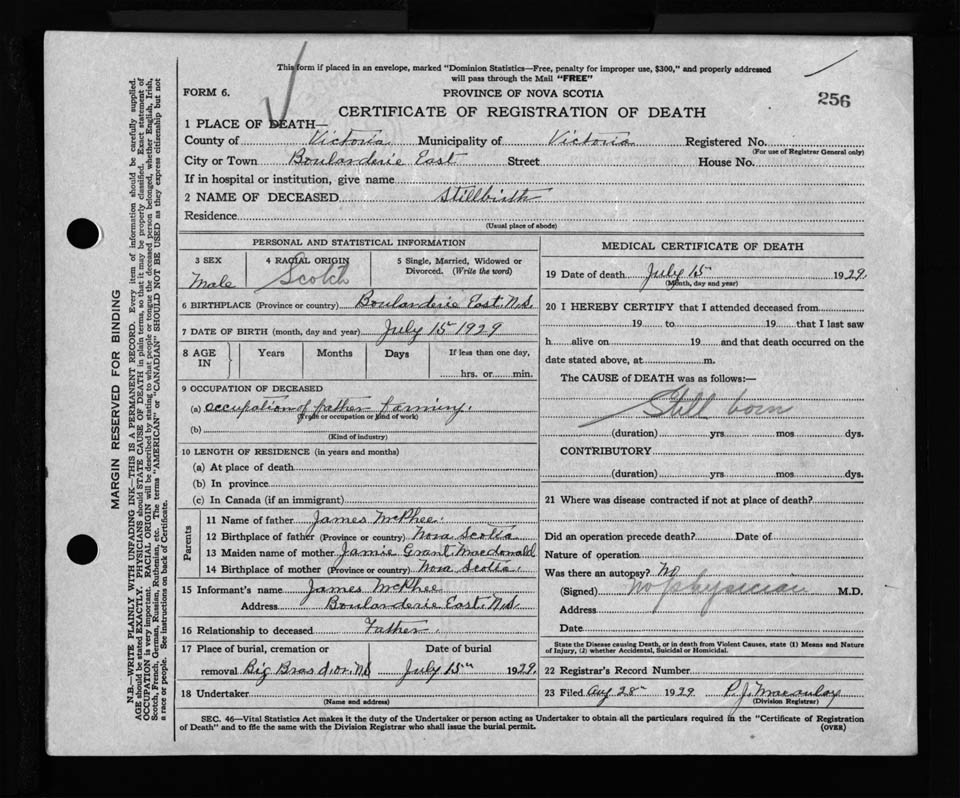 This form if placed in an envelope, marked "Dominion Statistics—Free, penalty for improper use, $300," and properly addressed
will pass through the Mail "FREE"
FORM 6.
PROVINCE OF NOVA SCOTIA
256
CERTIFICATE OF REGISTRATION OF DEATH
1 PLACE OF DEATH—
County of Victoria Municipality of Victoria Registered No.
(For use of Registrar General only)
City or Town Boularderie East Street House No.
If in hospital or institution, give name
2 NAME OF DECEASED Stillbirth
Residence
(Usual place of abode)
MARGIN RESERVED FOR BINDING
N.B.—WRITE PLAINLY WITH UNFADING INK—THIS IS A PERMANENT RECORD. Every item of information should be carefully supplied.
AGE should be stated EXACTLY. PHYSICIANS should STATE CAUSE OF DEATH in plain terms, so that it may be properly classified. Exact statement of
OCCUPATION is very important. RACIAL ORIGIN will be described by stating to what people or tongue the deceased person belonged, whether English, Irish,
Scotch, French, German, Russian, Ruthenian, etc. The terms "AMERICAN" or "CANADIAN" SHOULD NOT BE USED as they express citizenship but not
a race or people. See instructions on back of Certificate.
PERSONAL AND STATISTICAL INFORMATION
3 SEX
Male
4 RACIAL ORIGIN
Scotch
5 Single, Married, Widowed or
Divorced. (Write the word)
6 BIRTHPLACE (Province or country) Boularderie East N.S.
7 DATE OF BIRTH (month, day and year) July 15 1929
8 AGE
IN
Years Months Days
If less than one day,
hrs. or min.
9 OCCUPATION OF DECEASED
(a) occupation of father farming.
(Trade or occupation or kind of work)
(b)
(Kind of industry)
10 LENGTH OF RESIDENCE (in years and months)
(a) At place of death
(b) In province
(c) In Canada (if an immigrant)
Parents
11 Name of father James McPhee.
12 Birthplace of father (Province or country) Nova Scotia
13 Maiden name of mother Jamie Grant Macdonald
14 Birthplace of mother (Province or country) Nova Scotia.
15 Informant's name James McPhee
Address Boularderie East. N.S.
16 Relationship to deceased Father.
17 Place of burial, cremation or
removal Big Bras d'or, NS
Date of burial
July 15th 1929.
18 Undertaker
(Name and address)
MEDICAL CERTIFICATE OF DEATH
19 Date of death July 15 1929.
(Month, day and year)
20 I HEREBY CERTIFY that I attended deceased from
19 to 19 that I last saw
h alive on 19 and that death occurred on the
date stated above, at m.
The CAUSE of DEATH was as follows:—
Still born
(duration) yrs mos dys.
CONTRIBUTORY
(duration) yrs. mos. dys.
21 Where was disease contracted if not at place of death?
Did an operation precede death? Date of
Nature of operation
Was there an autopsy? No
(Signed) no physician M.D.
Address
Date
State the Disease causing Death, or in death from Violent Causes, state (1) Means and Nature
of Injury, (2) whether Accidental, Suicidal or Homicidal.
22 Registrar's Record Number
23 Filed Aug 28th 1929 P. J. Macaulay
(Division Registrar)
SEC. 46—Vital Statistics Act makes it the duty of the Undertaker or person acting as Undertaker to obtain all the particulars required in the "Certificate of Registration
of Death" and to file the same with the Division Registrar who shall issue the burial permit.
(OVER)